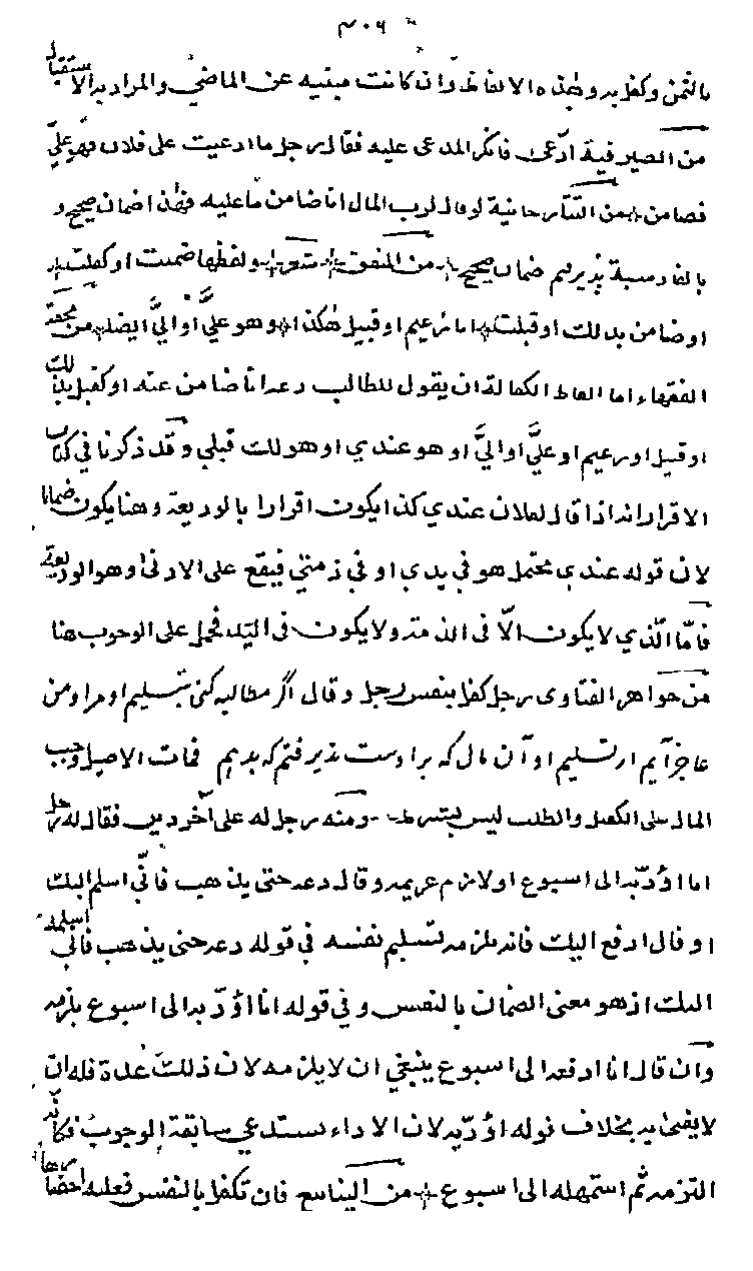 ٣٠٦
بالثمن وكفل به وهذه الالفاظ وان كانت مبنية عن الماضي والمراد به الاستقبال
من الصيرفية ادّعى فانكر المدعى عليه فقال رجل ما ادعيت على فلان فهو عليّ
فضامن من التتارخانية لو قال لرب المال انا ضامن ما عليه فهذا ضمان صحيح و
بالفارسية پذيرفتم ضمان صحيح من المنقول ولفظها ضمنت او كفلت
او ضامن بدلك او قبلت انا زعيم او قبيل هكذا او هو عليَّ أو اليَّ ايضا من تحفة
الفقهاء اما الفاظ الكفالة ان يقول للطالب دعه انا ضامن عنه او كفيل بذلك
او قبيل او زعيم او عليَّ او اليَّ او هو عندي او هو لك قبلي وقد ذكرنا في كتاب
الاقرار انه اذا قال لفلان عندي كذا يكون اقرارا بالوديعة وهنا يكون ضمانا
لان قوله عندي يحتمل هو في يدي او في ذمتي فيقع على الادنى وهو الوديعة
فامّا الّذي لا يكون الّا في الذمة ولا يكون في اليد فحمل على الوجوب هنا
من جواهر الفتاوى رجل كفل بنفس رجل وقال اگر مطالبه كنى بتسليم او مرا ومن
عاجز آيم از تسليم او آن مال كه بر اوست پذيرفتم كه بدهم فمات الاصيل وجب
المال على الكفيل والطلب ليس بشرط ومنه رجل له على آخر دين فقال له رجل
انا اؤدّيه الى اسبوع او لازم غريمه وقال دعه حتى يذهب فانّي اسلم اليك
او قال ادفع اليك فانه يلزمه تسليم نفسه في قوله دعه حتى يذهب فاني اسلمه
اليك اذ هو معنى الضمان بالنفس وفي قوله انا اؤدّيه الى اسبوع يلزمه
وان قال انا ادفعه الى اسبوع ينبغي ان لا يلزمه لان ذلك عدة فله ان
لا يفي به بخلاف قوله اؤدّيه لان الاداء يستدعي سابقة الوجوب فكانّه
التزمه ثم استمهله الى اسبوع من الينابيع فان تكفل بالنفس فعليه احضارها